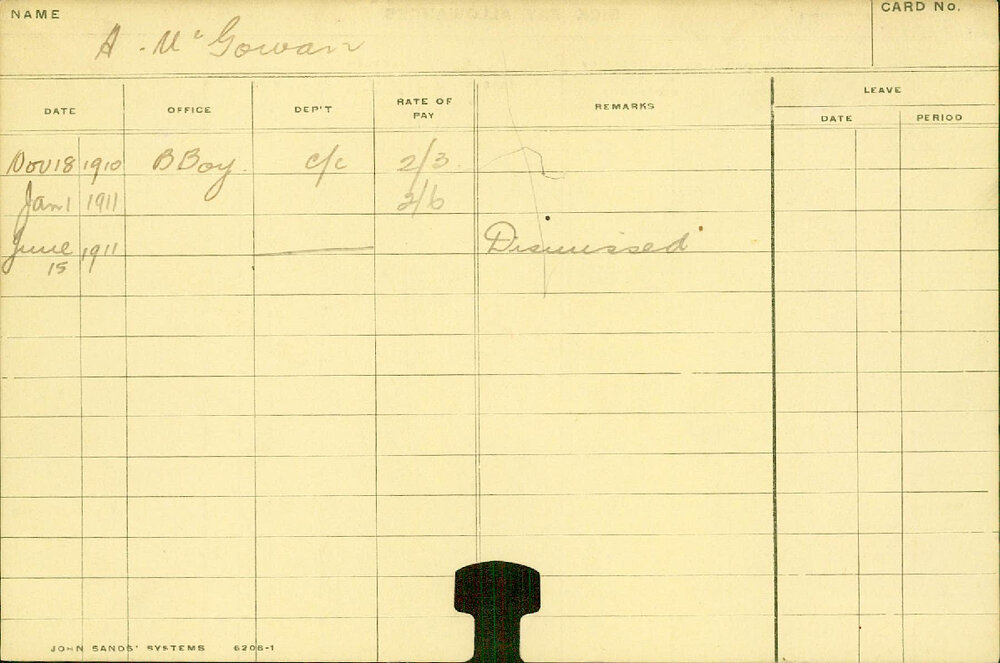 NAME
CARD No.
A. McGowan
DATE OFFICE DEP'T RATE OF PAY REMARKS LEAVE
DATE PERIOD
Nov 18 1910 B Boy. c/c 2/3.
Jan 1 1911 2/6
June 15 1911 Dismissed
JOHN SANDS' SYSTEMS 6206-1